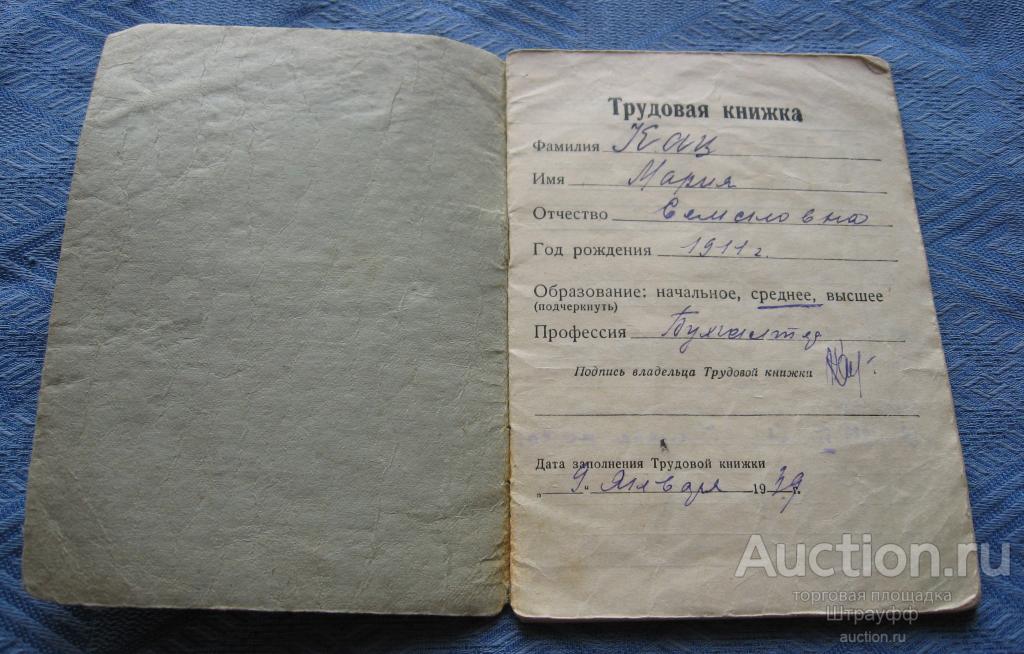 Трудовая книжка
Фамилия Кац
Имя Мария
Отчество
Год рождения 1911 г.
Образование: начальное, среднее, высшее
(подчеркнуть)
Профессия Бухгалтер
Подпись владельца Трудовой книжки
Дата заполнения Трудовой книжки
„ 9 " Января 1939 г.
Auction.ru
торговая площадка
Штрауфф
auction.ru